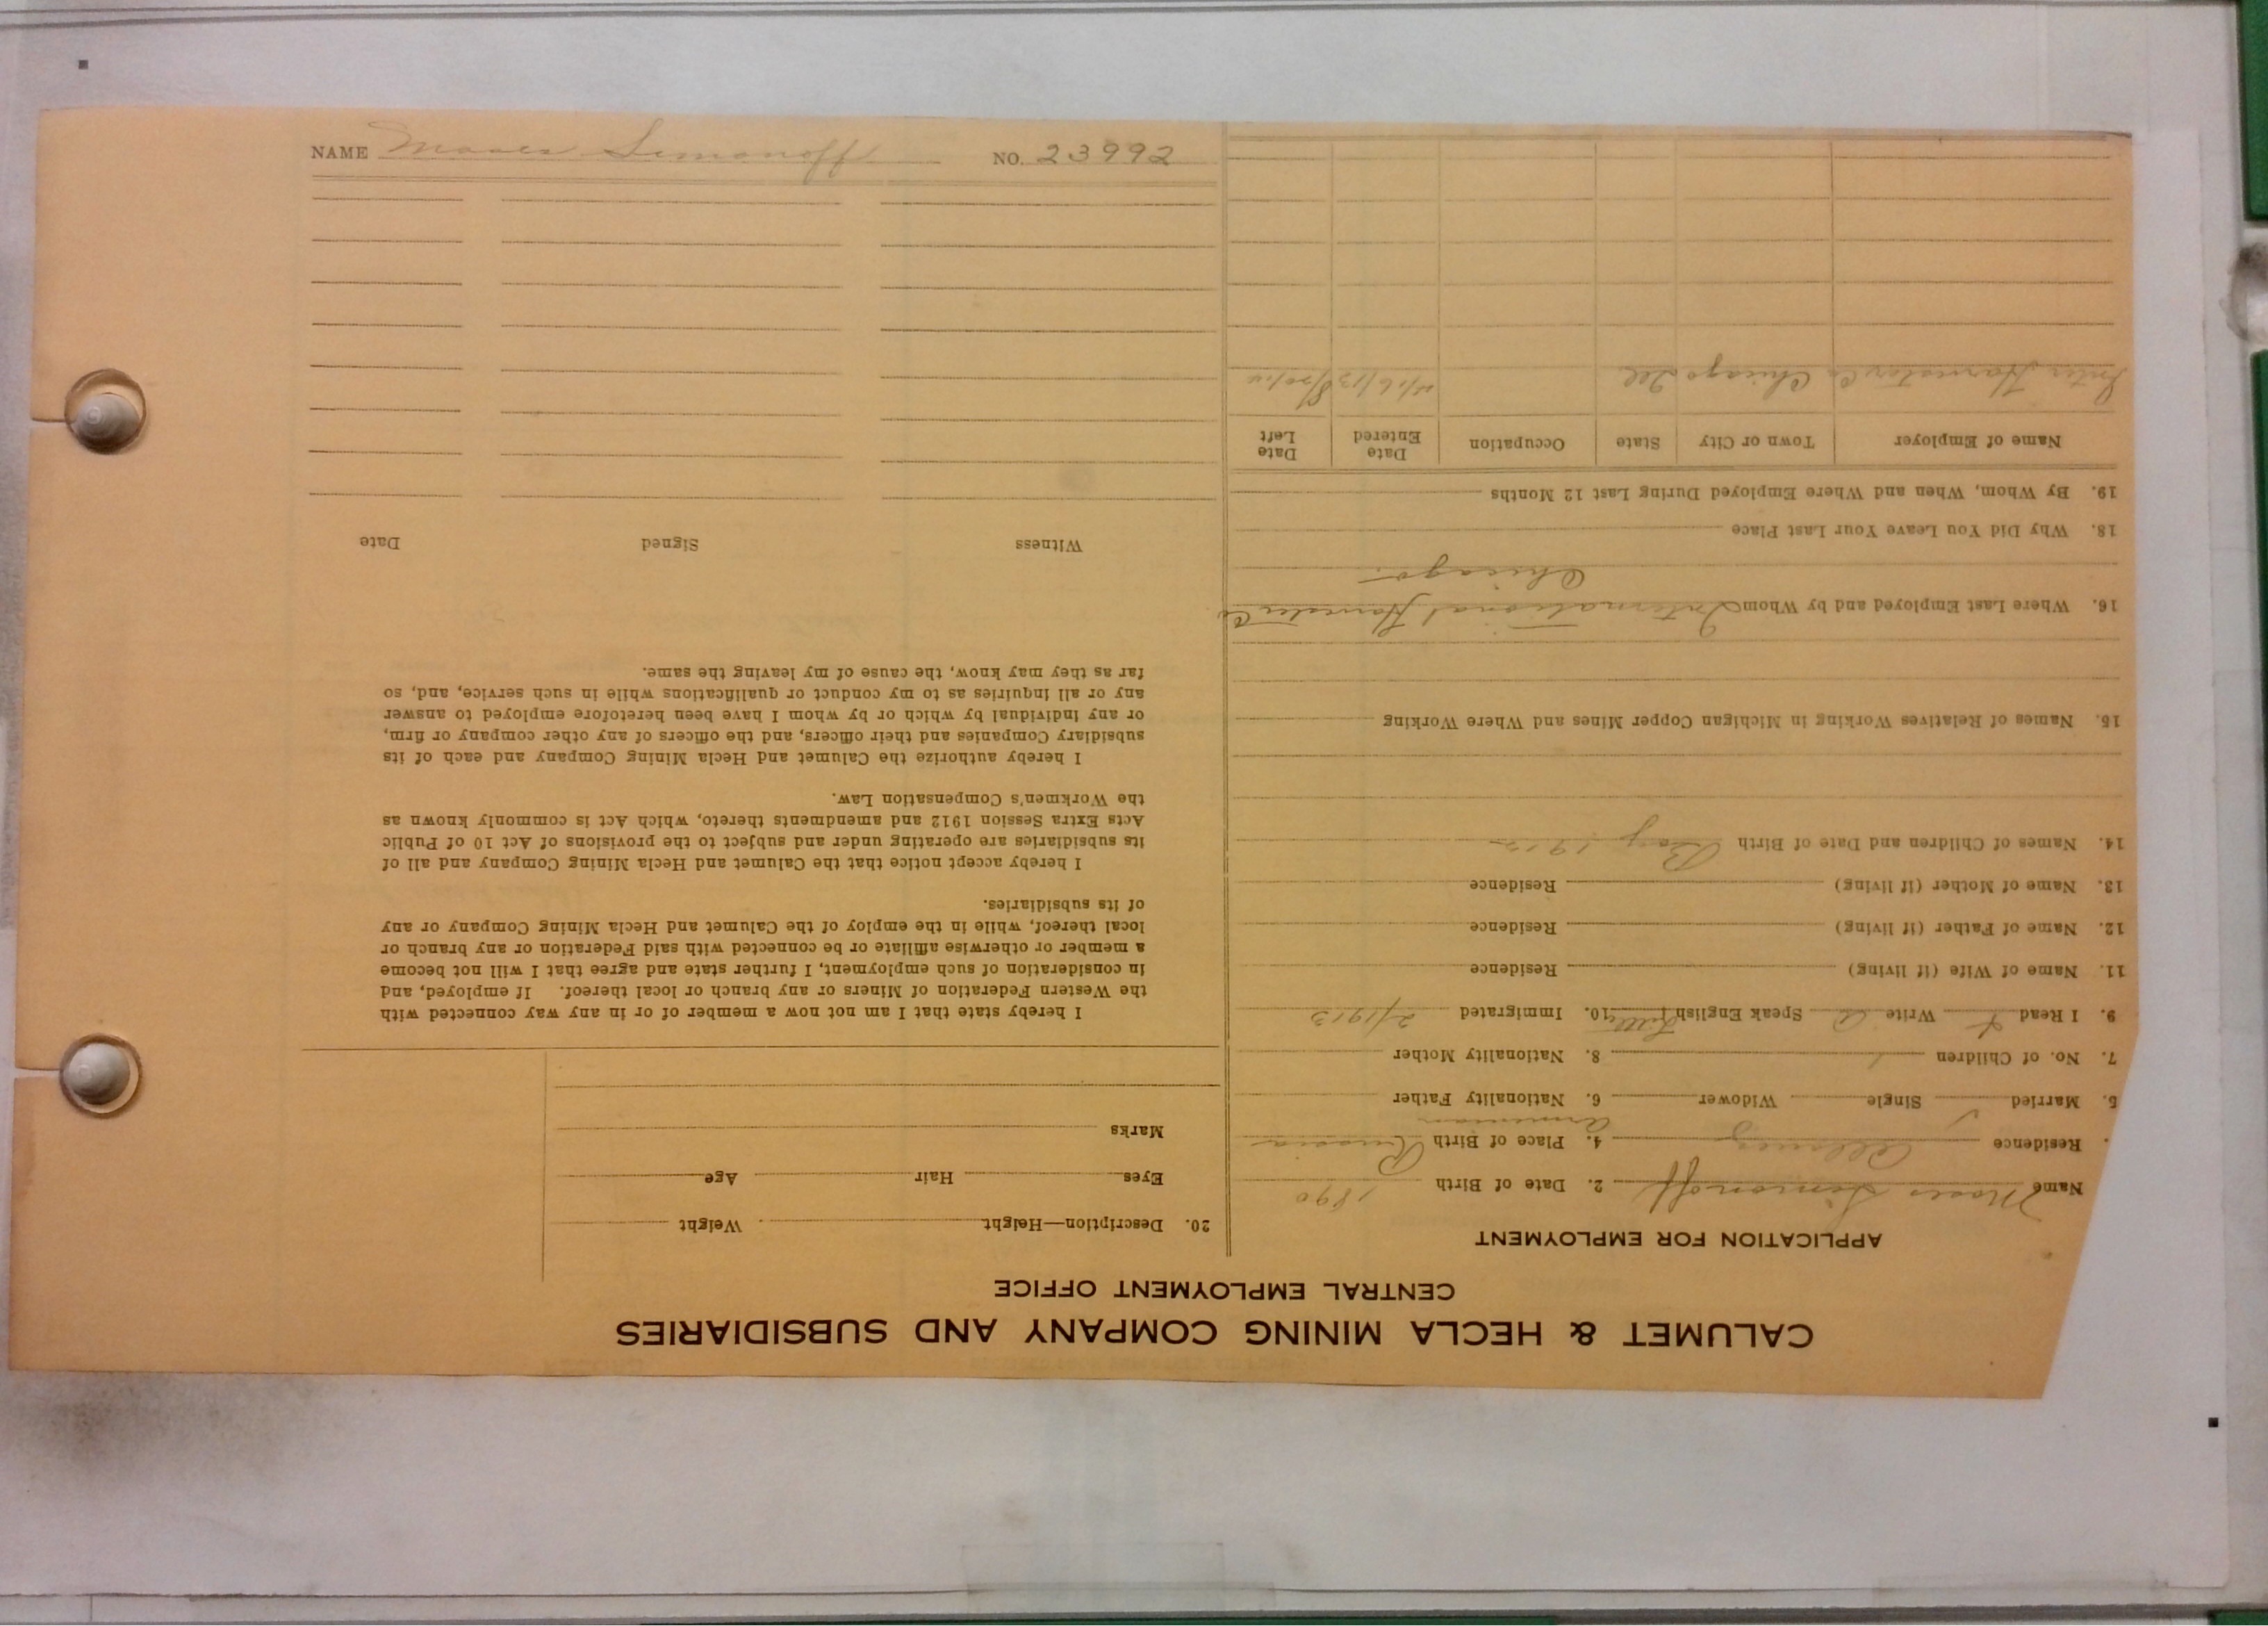 CALUMET & HECLA MINING COMPANY AND SUBSIDIARIES
CENTRAL EMPLOYMENT OFFICE
APPLICATION FOR EMPLOYMENT
Name Moses Simonoff 2. Date of Birth 1890
Residence 4. Place of Birth Russia
Armenian
5. Married ✓ Single Widower 6. Nationality Father
7. No. of Children 1 8. Nationality Mother
9. I Read Write Speak English Little 10. Immigrated 2/1913
11. Name of Wife (if living) Residence
12. Name of Father (if living) Residence
13. Name of Mother (if living) Residence
14. Names of Children and Date of Birth Boy 1912
15. Names of Relatives Working in Michigan Copper Mines and Where Working
16. Where Last Employed and by Whom International Harvester Co
Chicago.
18. Why Did You Leave Your Last Place
19. By Whom, When and Where Employed During Last 12 Months
Name of Employer Town or City State Occupation Date Entered Date Left
Inter Harvester Co Chicago Ill
20. Description—Height Weight
Eyes Hair Age
Marks
I hereby state that I am not now a member of or in any way connected with
the Western Federation of Miners or any branch or local thereof. If employed, and
in consideration of such employment, I further state and agree that I will not become
a member or otherwise affiliate or be connected with said Federation or any branch or
local thereof, while in the employ of the Calumet and Hecla Mining Company or any
of its subsidiaries.
I hereby accept notice that the Calumet and Hecla Mining Company and all of
its subsidiaries are operating under and subject to the provisions of Act 10 of Public
Acts Extra Session 1912 and amendments thereto, which Act is commonly known as
the Workmen's Compensation Law.
I hereby authorize the Calumet and Hecla Mining Company and each of its
subsidiary Companies and their officers, and the officers of any other company or firm,
or any individual by which or by whom I have been heretofore employed to answer
any or all inquiries as to my conduct or qualifications while in such service, and, so
far as they may know, the cause of my leaving the same.
Witness Signed Date
NAME Moses Simonoff NO. 23992